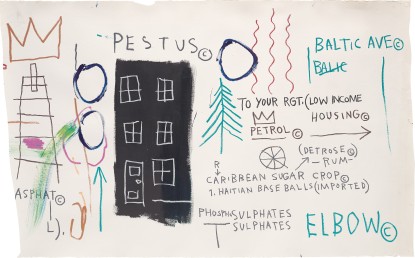 PESTUS©
BALTIC AVE©
BALIC
TO YOUR RGT. (LOW INCOME
HOUSING©
PETROL©
(DETROSE©
-RUM-
R
CARIBBEAN SUGAR CROP©
1. HAITIAN BASE BALLS (IMPORTED)
ASPHAT©
L).
PHOSPHUSULPHATES
SULPHATES
ELBOW©